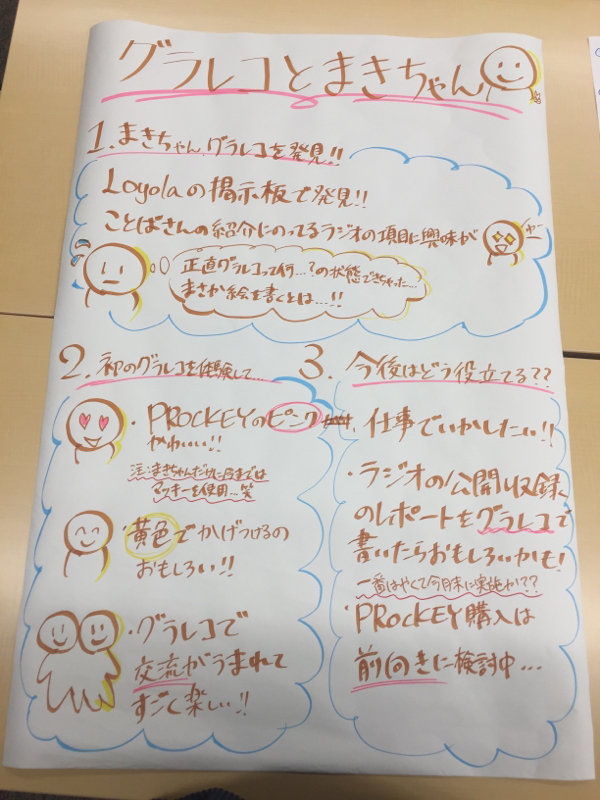 グラレコとまきちゃん
1. まきちゃん、グラレコを発見!!
Loyolaの掲示板で発見!!
ことばさんの紹介にのってるラジオの項目に興味が
正直グラレコって何…?の状態できちゃった…
まさか絵を書くとは…!!
2. 初のグラレコを体験して…
・PROCKEYのピンク
かわいい!!
注:まきちゃんだけに今までは
マッキーを使用…笑
・黄色でかげつけるの
おもしろい!!
・グラレコで
交流がうまれて
すごく楽しい!!
3. 今後はどう役立てる??
・仕事でいかしたい!!
・ラジオの公開収録、
のレポートをグラレコで
書いたらおもしろいかも!
一番はやくて今月末に実施か!??
・PROCKEY購入は
前向きに検討中…